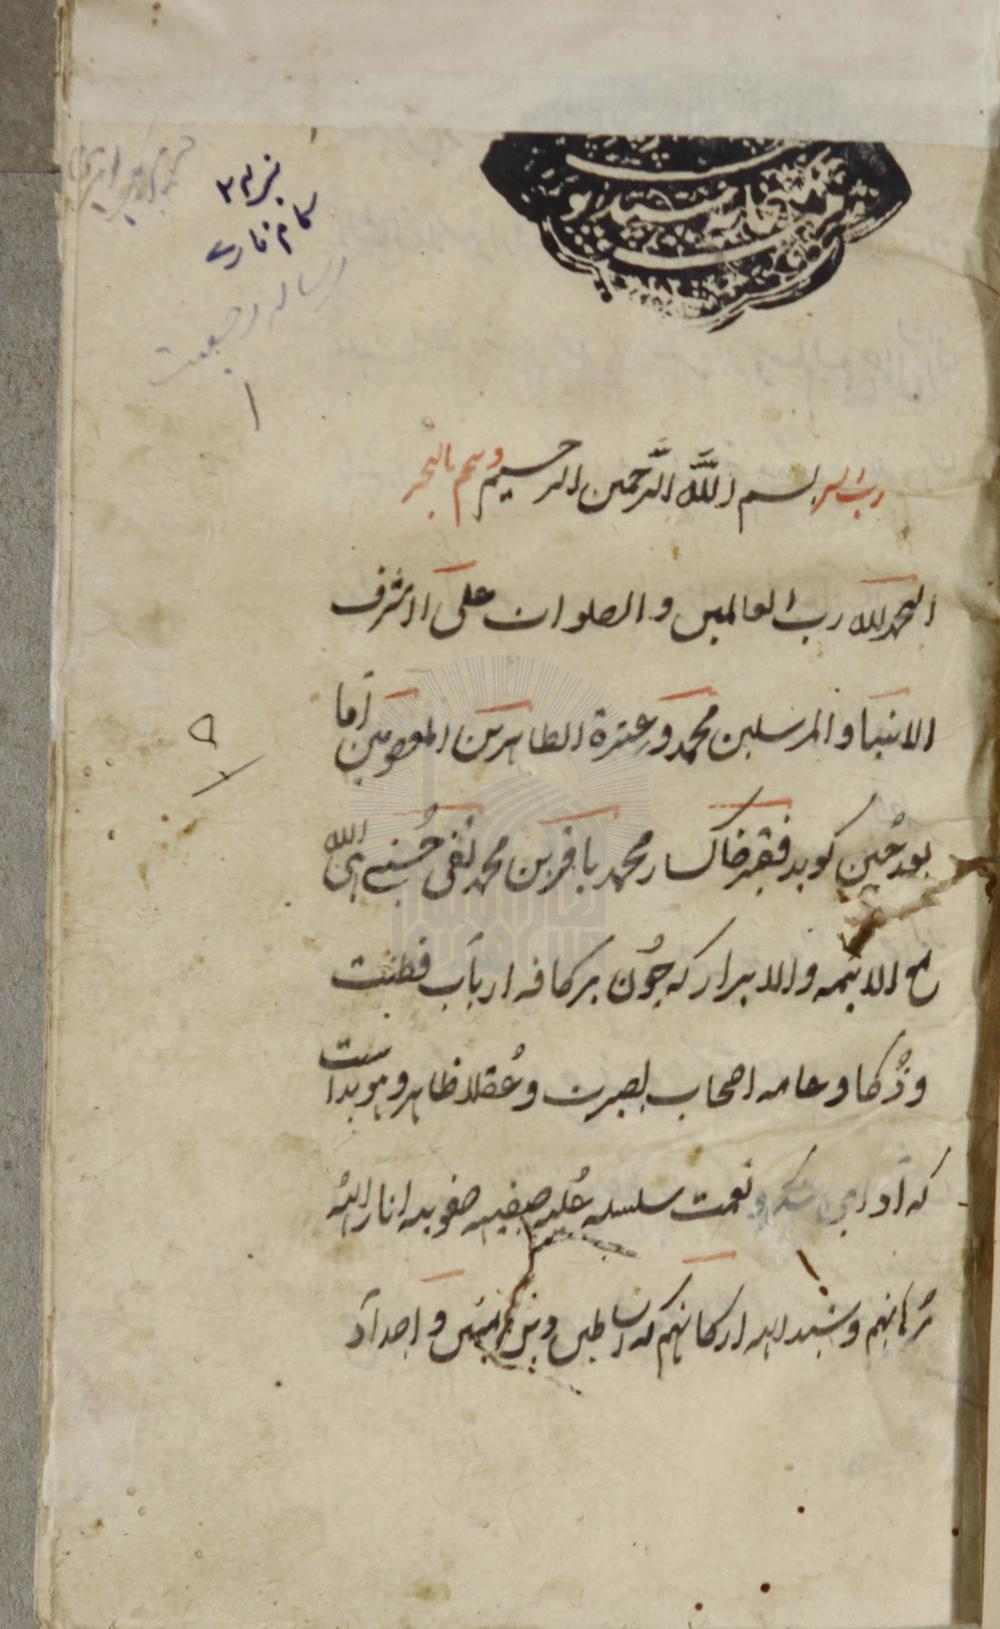 نمبر ۳۲
کلام فارسی
رساله رجعت
۱
رب یسر بسم الله الرحمن الرحیم وتمم بالخیر
الحمد لله رب العالمین و الصلوات علی اشرف
الانبیا و المرسلین محمد و عترة الطاهرین المعصومین اما
بعد چنین کوید فقیر خاکسار محمد باقر بن محمد تقی حشرهما الله
مع الائمه و الابرار که چون بر کافه ارباب فطنت
و ذکا و عامه اصحاب بصیرت و عقلا ظاهر و هویدا است
که ادای شکر نعمت سلسله علیه صفیه صفویه انار الله
برهانهم و شید الله ارکانهم که سلاطین و اجداد
۹